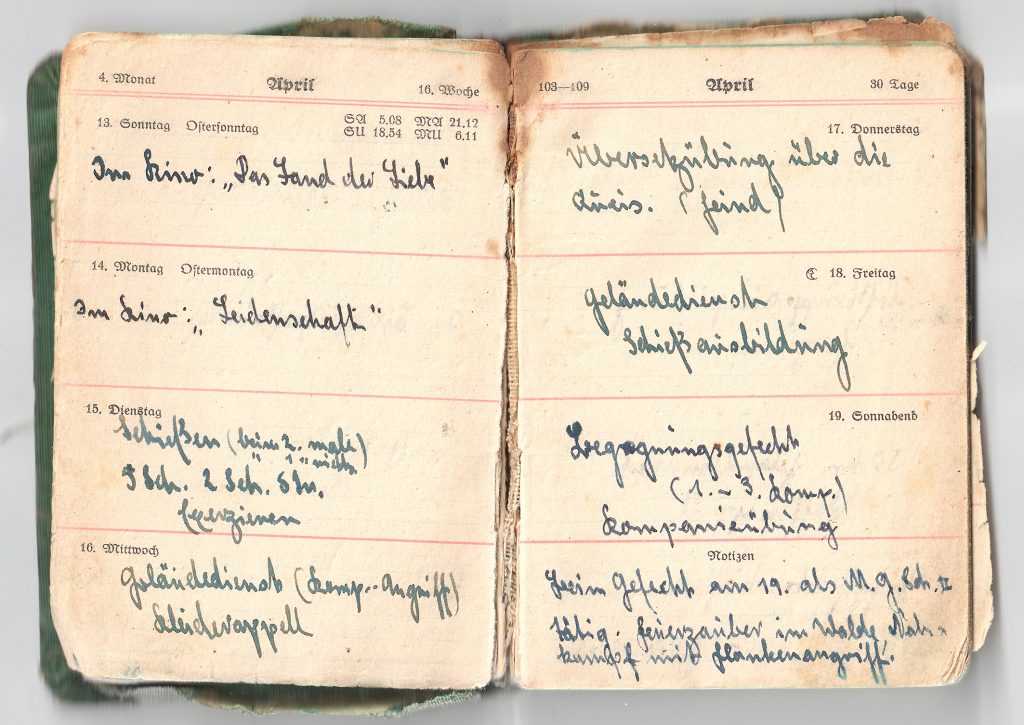 4. Monat April 16. Woche
13. Sonntag Ostersonntag SA 5.08 MA 21.12
SU 18.54 MU 6.11
Im Kino: „Das Land der Liebe"
14. Montag Ostermontag
Im Kino: „Leidenschaft"
15. Dienstag
Schießen (beim 2. male)
" 1. " nichts
5 Sch. 2 Sch.
Exerzieren
16. Mittwoch
Geländedienst (Komp.-Angriff)
Kleiderappell
103—109 April 30 Tage
17. Donnerstag
Übersetzübung über die
Queis. (Feind)
☾ 18. Freitag
Geländedienst
Schießausbildung
19. Sonnabend
Begegnungsgefecht
(1. - 3. Komp.)
Kompanieübung
Notizen
Beim Gefecht am 19. als M.G.Sch. 
tätig. Feuerzauber im Walde Nah-
kampf mit Flankenangriff.